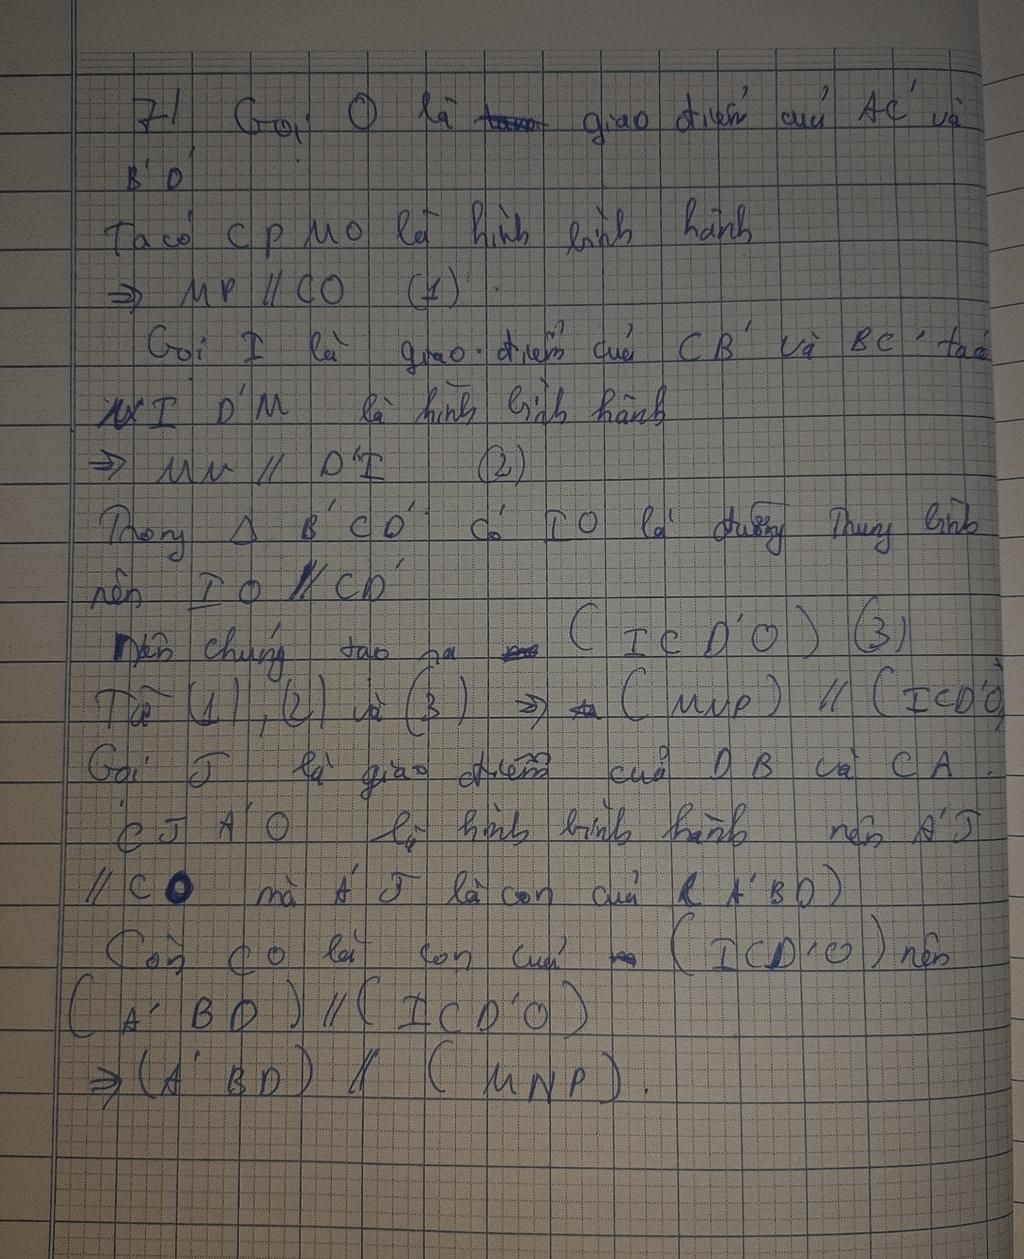 7/ Gọi O là giao điểm của A'C' và
B'D'
Ta có CPMO là hình bình hành
=> MP // CO (1)
Gọi I là giao điểm của CB' và BC' ta có
NI D'M là hình bình hành
=> MN // D'I (2)
Trong Δ B'CD' có IO là đường trung bình
nên IO // CD'
nên chúng tạo ra (ICD'O) (3)
Từ (1), (2) và (3) => (MNP) // (ICD'O)
Gọi J là giao điểm của DB và CA.
CJA'O là hình bình hành nên A'J
// CO mà A'J là con của (A'BD)
Còn CO là con của (ICD'O) nên
(A'BD) // (ICD'O)
=> (A'BD) // (MNP).